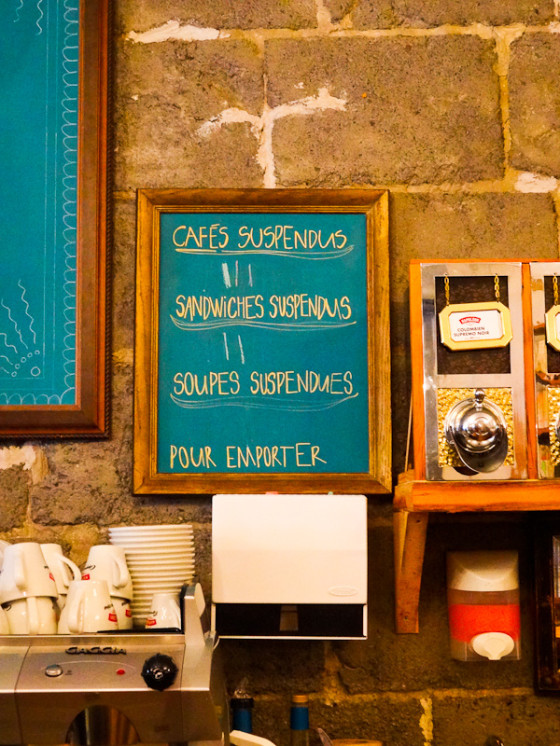 CAFÉS SUSPENDUS
SANDWICHES SUSPENDUS
SOUPES SUSPENDUES
POUR EMPORTER
COLOMBIEN
SUPREMO NOIR
GAGGIA